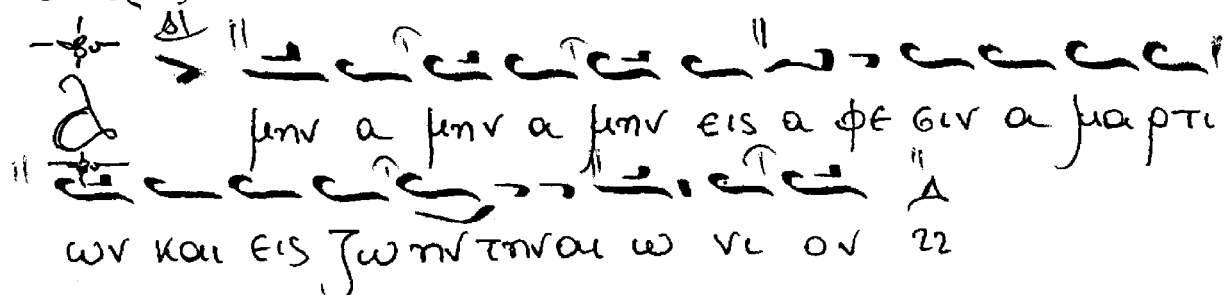 α μην α μην α μην εις α φε σιν α μαρτι
ων και εις ζω ην την αι ω νι ον 22